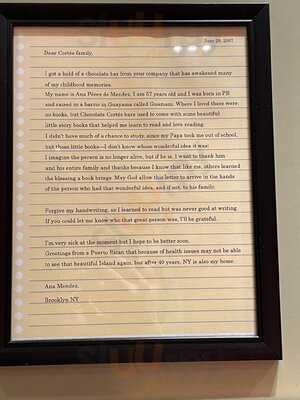 June 29, 2007
Dear Cortés family,
I got a hold of a chocolate bar from your company that has awakened many
of my childhood memories.
My name is Ana Pérez de Mendez. I am 57 years old and I was born in PR
and raised in a barrio in Guayama called Guamaní. Where I lived there were
no books, but Chocolate Cortés bars used to come with some beautiful
little story books that helped me learn to read and love reading.
I didn't have much of a chance to study, since my Papa took me out of school,
but those little books—I don't know whose wonderful idea it was!
I imagine the person is no longer alive, but if he is, I want to thank him
and his entire family and thanks because I know that like me, others learned
the blessing a book brings. May God allow this letter to arrive in the hands
of the person who had that wonderful idea, and if not, to his family.
Forgive my handwriting, as I learned to read but was never good at writing.
If you could let me know who that great person was, I'll be grateful.
I'm very sick at the moment but I hope to be better soon.
Greetings from a Puerto Rican that because of health issues may not be able
to see that beautiful Island again, but after 40 years, NY is also my home.
Ana Mendez,
Brooklyn NY